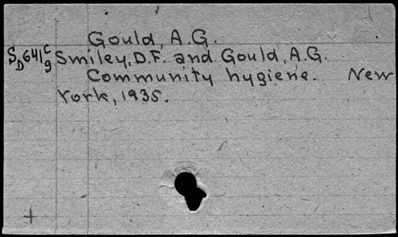 Gould, A.G.
S D641c g Smiley, D.F. and Gould, A.G.
Community hygiene. New
York, 1935.